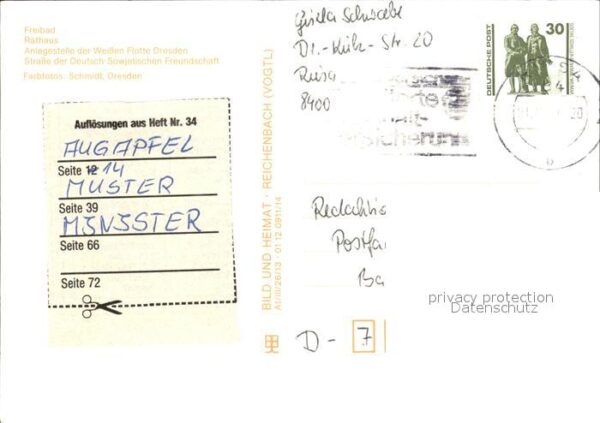 Freibad
Rathaus
Anlegestelle der Weißen Flotte Dresden
Straße der Deutsch-Sowjetischen Freundschaft
Farbfotos: Schmidt, Dresden
Auflösungen aus Heft Nr. 34
AUGAPFEL
Seite 12 14
MUSTER
Seite 39
MINISTER
Seite 66
Seite 72
BILD UND HEIMAT · REICHENBACH (VOGTL)
A1/III/26/13 · 01 12 0911/14
Gisela Schwabe
Dr.-Külz-Str. 20
Riesa
8400
DEUTSCHE POST
30
Redaktio
Postfa
Ba
D-7
privacy protection
Datenschutz